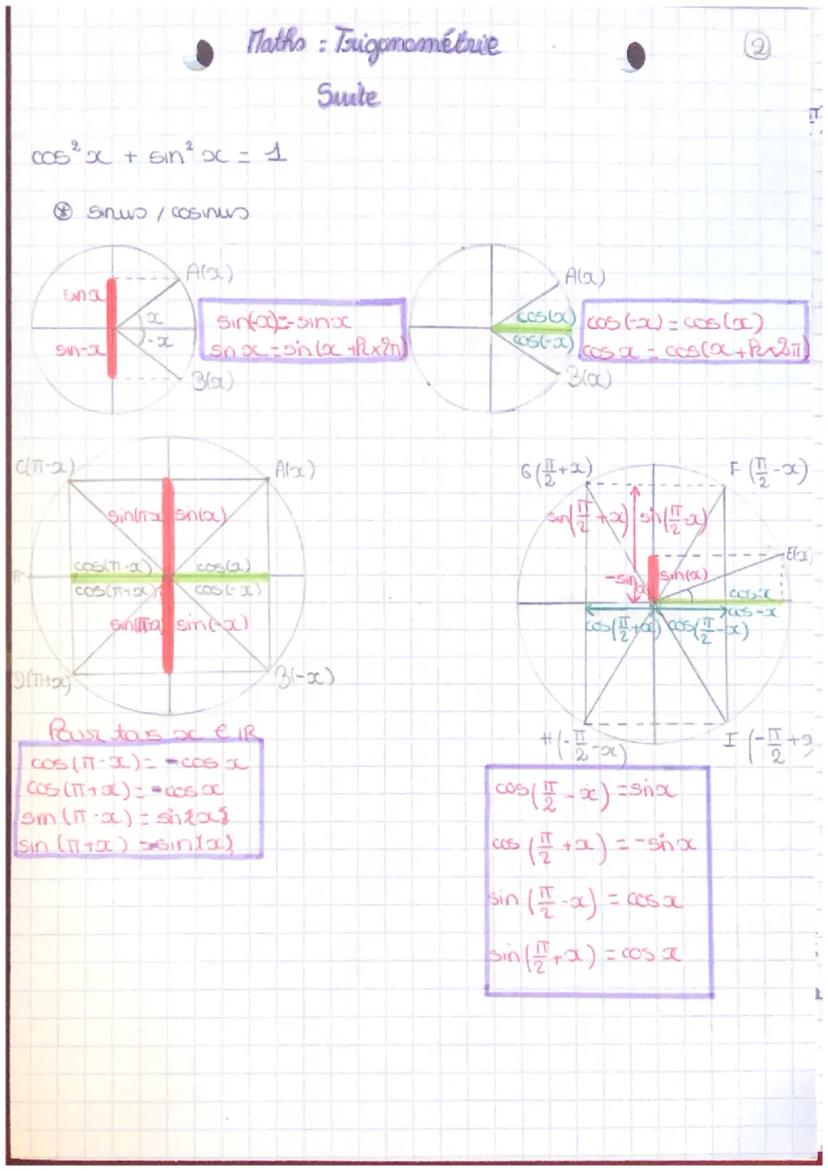 Maths : Trigonométrie
2
Suite
cos² x + sin² x = 1
⊛ sinus / cosinus
A(x)
sin x
x
-x
sin-x
B(x)
sin(-x)=-sin x
sin x = sin(x + k×2π)
A(x)
cos(x)
cos(-x)
B(x)
cos(-x) = cos(x)
cos x = cos(x + k×2π)
C(π-x)
A(x)
sin(π-x)
sin(x)
cos(π-x)
cos(x)
cos(π+x)
cos(-x)
sin(-x)
D(π+x)
B(-x)
Pour tous x ∈ IR
cos(π-x) = -cos x
cos(π+x) = -cos x
sin(π-x) = sin(x)
sin(π+x) = -sin(x)
G(π/2+x)
F(π/2-x)
sin(π/2+x)
sin(π/2-x)
E(x)
-sin x
sin(x)
cos x
cos-x
cos(π/2+x)
cos(π/2-x)
H(-π/2-x)
I(-π/2+x)
cos(π/2-x) = sin x
cos(π/2+x) = -sin x
sin(π/2-x) = cos x
sin(π/2+x) = cos x